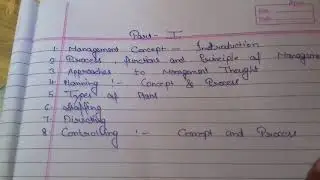 Date
Part - I
1. Management Concept - Introduction
2 Process, functions and Principle of Management
3 Approaches to Management Thought
4 Planning :- Concept & Process
5 Types of Plans
6. Staffing
7. Directing
8. Controlling :- Concept and Process